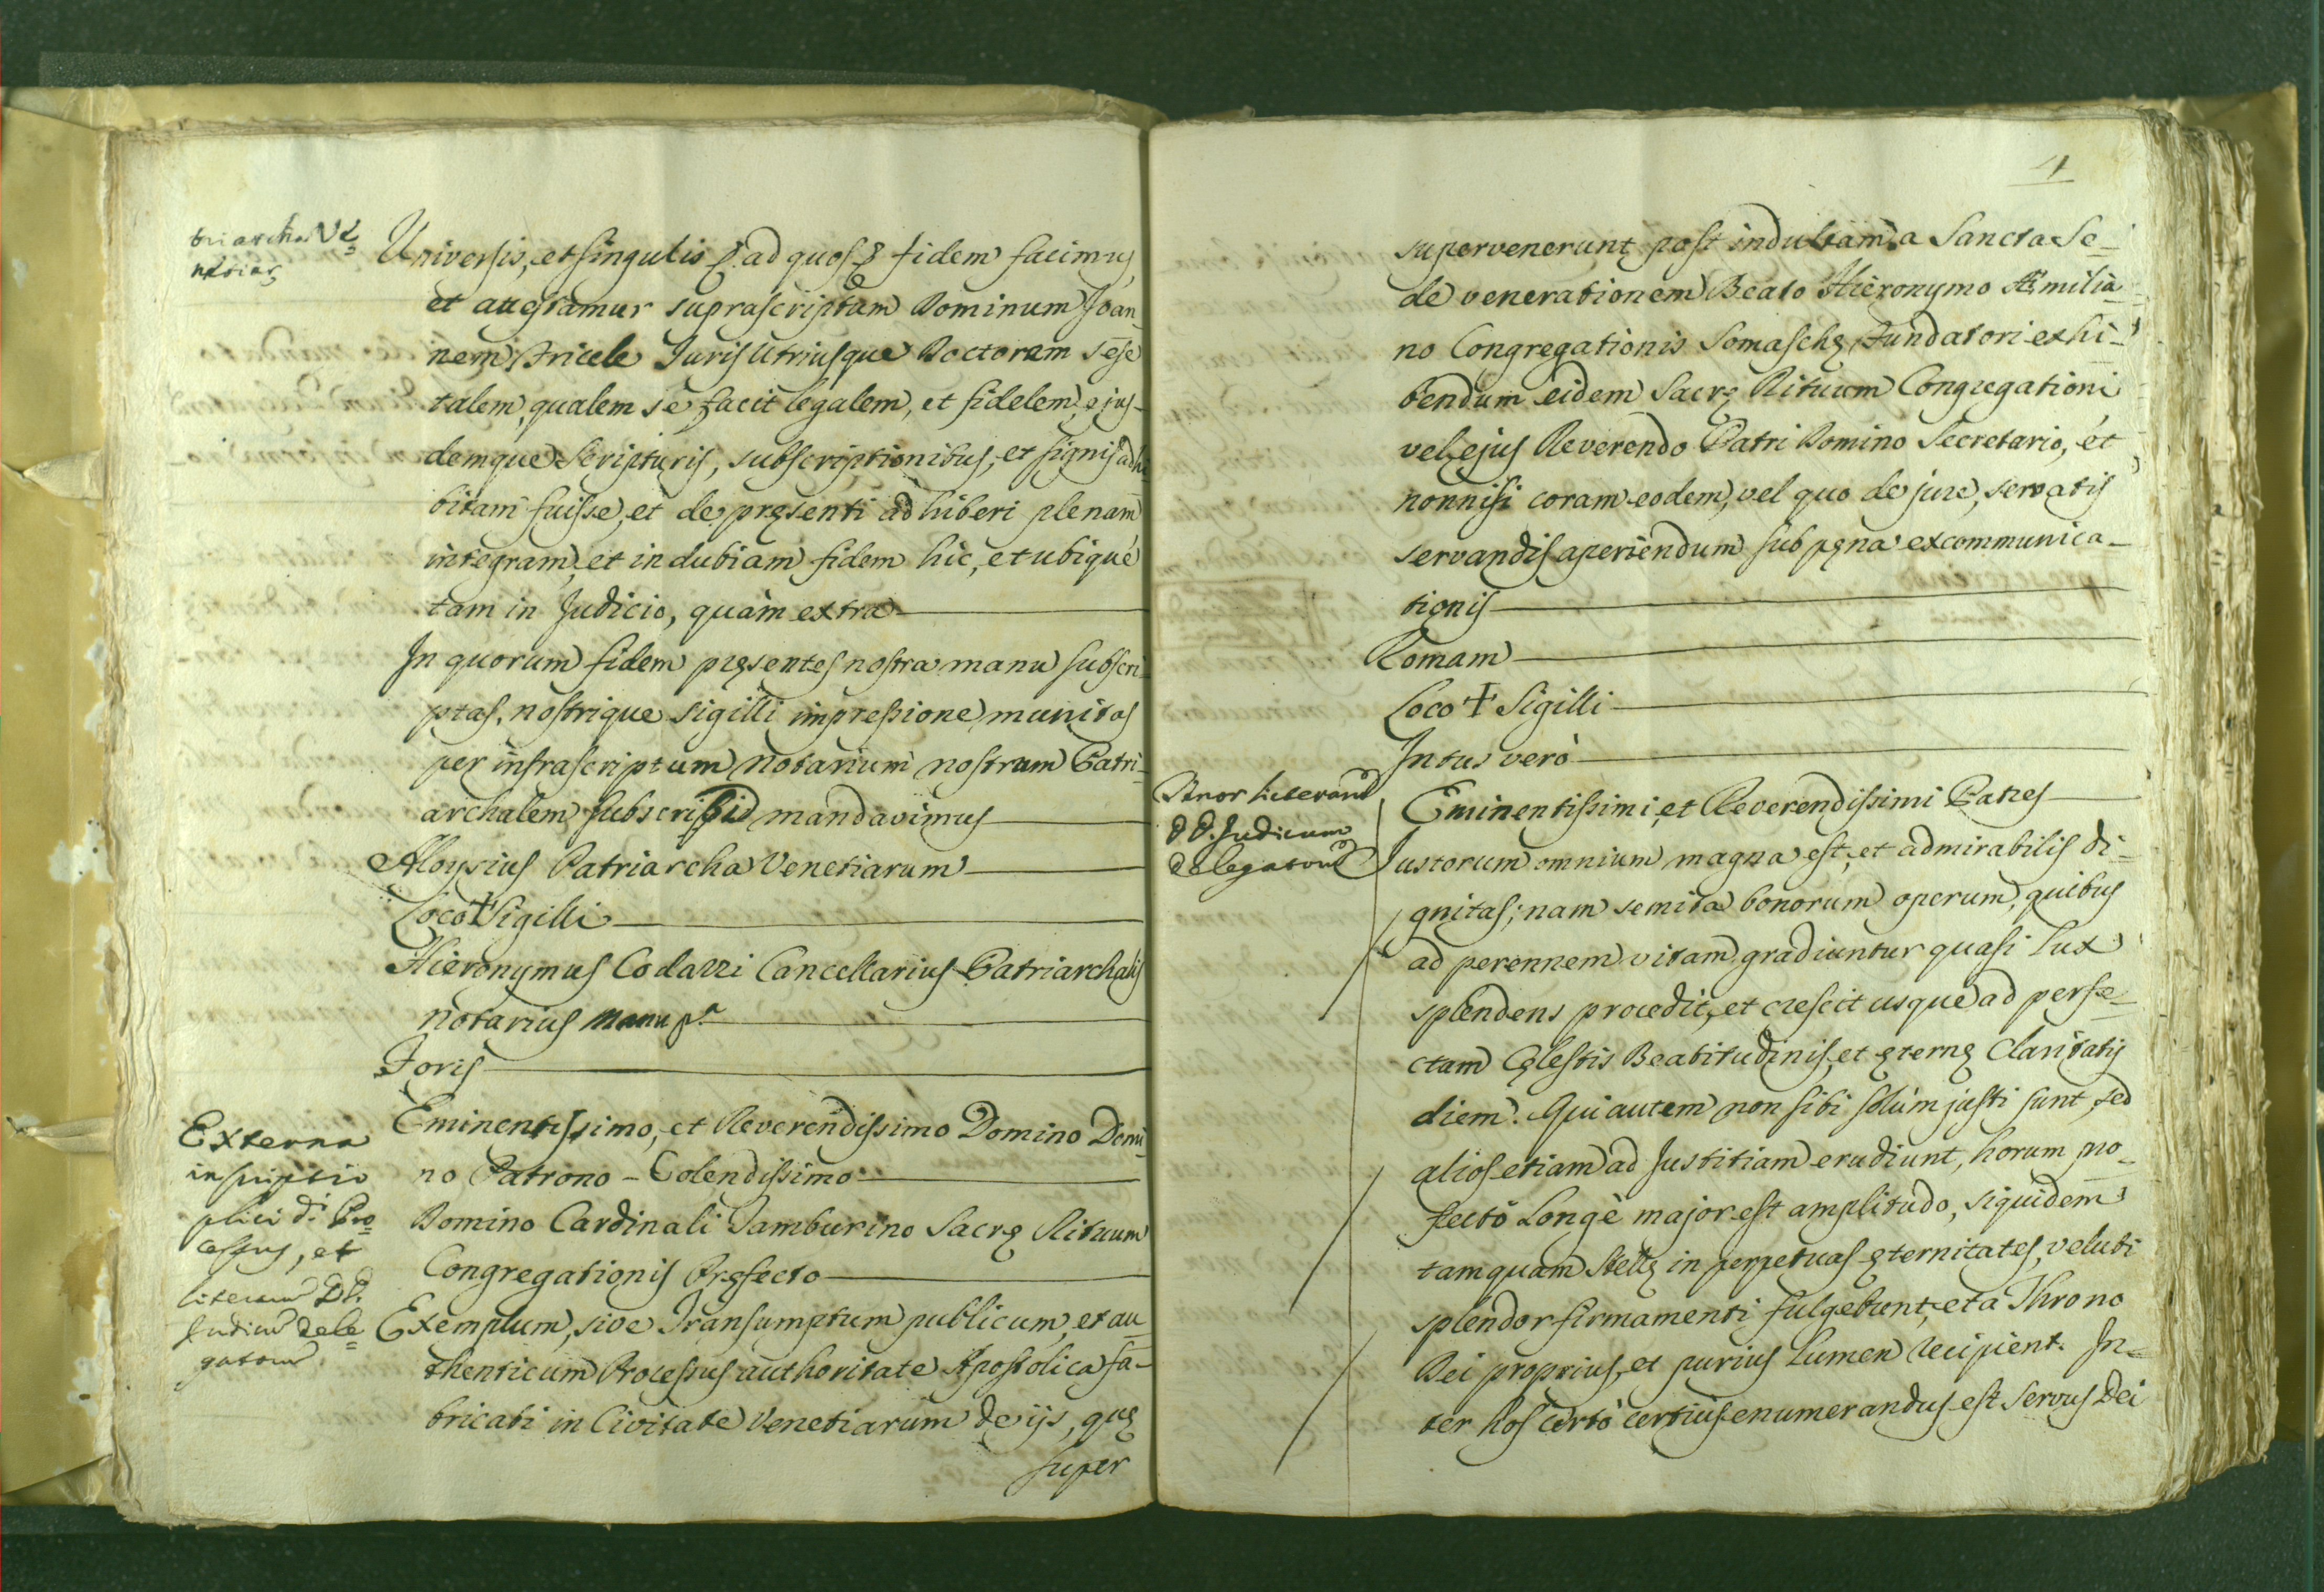 triarcha Ve=
netiarę
Universis, et singulis &. ad quos & fidem facimus,
et attestamur suprascriptum Dominum Joan-
nem Tricele Juris Utriusque Doctorem sese
talem, qualem se facit legalem, et fidelem, ejus-
demque Scripturis, subscriptionibus, et signis adhi
bitam fuisse, et de pręsenti adhiberi plenam
integram, et indubiam fidem hic, et ubique
tam in Judicio, quàm extra
In quorum fidem pręsentes nostra manu subscri-
ptas, nostrique sigilli impressione munitas
per infrascriptum Notarium nostrum Patri-
archalem subscribi mandavimus
Aloysius Patriarcha Venetiarum
Loco † Sigilli
Hieronymus Codazzi Cancellarius Patriarchalis
Notarius Manu pª
Foris
Externa
inscriptio
plici d.i Pro=
cessus, et
literarum DD.
Judicum dele=
gatorum
Eminentissimo, et Reverendissimo Domino Domi-
no Patrono - Colendissimo
Domino Cardinali Tamburino Sacrę Rituum
Congregationis Pręfecto
Exemplum, sive Transumptum publicum, et au-
thenticum Processus authoritate Apostolica fa-
bricati in Civitate Venetiarum de ijs, quę
super
4
supervenerunt post indultam a Sancta Se-
de venerationem Beato Hieronymo Æmilia-
no Congregationis Somaschę Fundatori exhi-
bendum eidem Sacrę Rituum Congregationi
vel ejus Reverendo Patri Domino Secretario, et
nonnisi coram eodem, vel quo de jure, servatis
servandis aperiendum sub pęna excommunica-
tionis
Romam
Loco † Sigilli
Intus verò
Tenor literarum
DD. Judicum
delegatorum
Eminentissimi, et Reverendissimi Patres
Justorum omnium magna est, et admirabilis di-
gnitas; nam semita bonorum operum, quibus
ad perennem vitam gradiuntur quasi Lux
splendens procedit, et crescit usque ad perfe-
ctam Cęlestis Beatitudinis, et ęternę Claritatis
diem. Qui autem non sibi solùm justi sunt, sed
alios etiam ad Justitiam erudiunt, horum pro-
fectò Longè major est amplitudo, siquidem
tamquam stellę in perpetuas ęternitates, veluti
splendor firmamenti fulgebunt, et à Throno
Dei proprius, et purius Lumen recipient. In-
ter hos certò certius enumerandus est Servus Dei